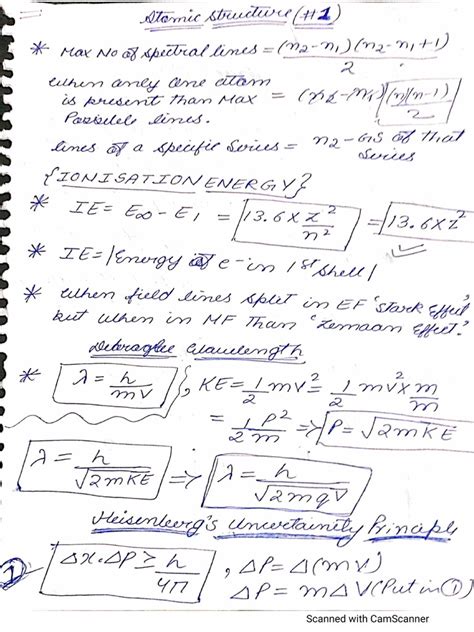 Atomic Structure (#1)
* Max No of Spectral lines = (n₂-n₁)(n₂-n₁+1)/2
when only one atom
is present than Max = (n₂-n₁) (n)(n-1)/2
Possible lines.
lines of a Specific Series = n₂ - G.S of that Series
{IONISATION ENERGY}
* IE = E∞ - E₁ = 13.6 x z²/n² = 13.6 x z²
* IE = |Energy of e⁻ in 1st Shell|
* when field lines split in EF 'Stark Effect'
but when in MF Than 'Zemaan Effect'.
Debroglie Wavelength
* λ = h/mv }, KE = 1/2 mv² = 1/2 mv² x m/m
= 1/2 P²/m => P = √2mKE
λ = h/√2mKE => λ = h/√2mqV
Heisenberg's Uncertainity Principle
① Δx.ΔP ≥ h/4π , ΔP = Δ(mv)
ΔP = mΔV (Put in ①)
Scanned with CamScanner